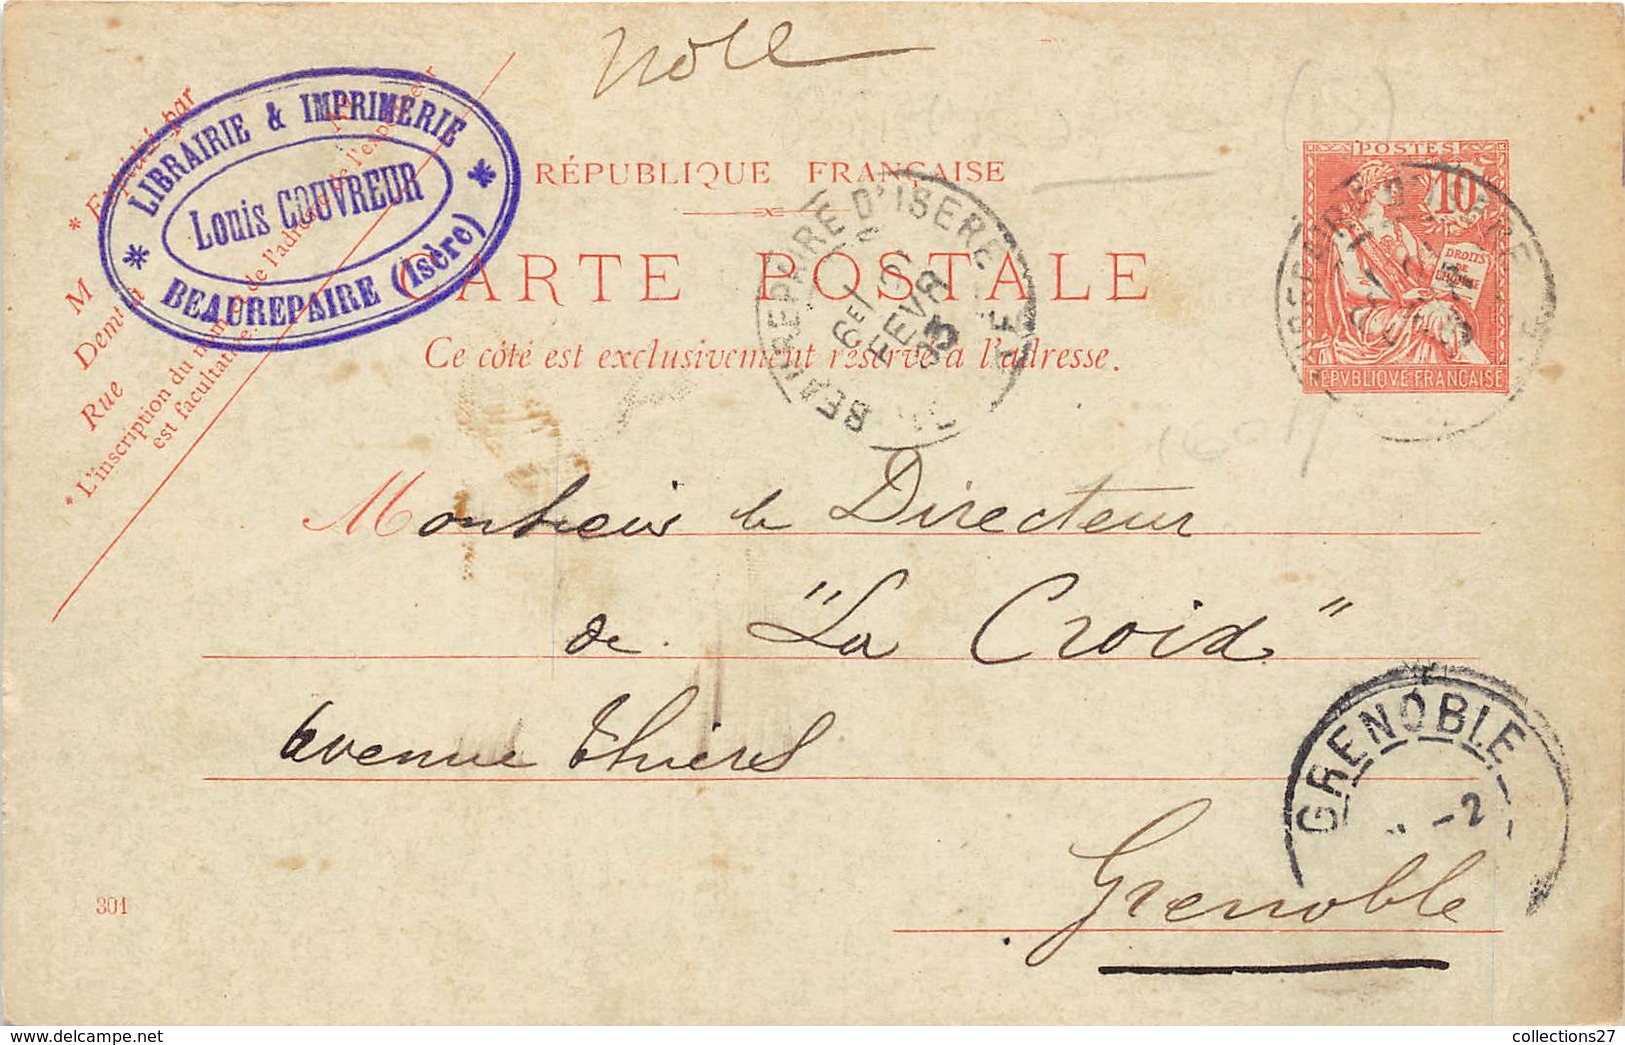 note
LIBRAIRIE & IMPRIMERIE
Louis COUVREUR
BEAUREPAIRE (Isère)
* Expédié par
M
Demt à
Rue
* L'inscription du nom de l'adresse de l'expéditeur
est facultative.
RÉPUBLIQUE FRANÇAISE
CARTE POSTALE
Ce côté est exclusivement réservé à l'adresse.
POSTES
10
DROITS
DE
L'HOMME
REPVBLIQVE FRANÇAISE
BEAUREPAIRE D'ISERE
ISERE
6E/
FEVR
03
Monsieur le Directeur
de "La Croix"
Avenue Thiers
Grenoble
GRENOBLE
-2
301
collections27
delcampe.net